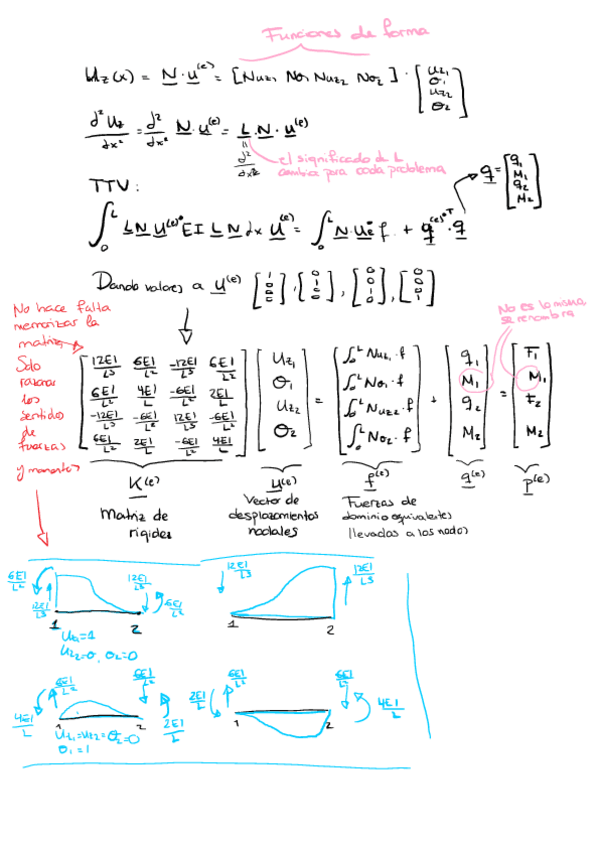 Funciones de forma
Uz(x) = N · u^(e) = [Nuz₁ Nθ₁ Nuz₂ Nθ₂] · [uz₁ θ₁ uz₂ θ₂]
d²Uz/dx² = d²/dx² N · u^(e) = L · N · u^(e)
d²/dx²
el significado de L
cambia para cada problema
TTV:
q = [q₁ M₁ q₂ M₂]
Dando valores a u^(e) [1 0 0 0], [0 1 0 0], [0 0 1 0], [0 0 0 1]
No hace falta
memorizar la
matriz
Solo
razonar
los
sentidos
de
fuerzas
y momentos
No es lo mismo
se renombra
12EI/L³ 6EI/L² -12EI/L³ 6EI/L² Uz₁ ∫₀ᴸ Nuz₁ · f q₁ F₁
6EI/L² 4EI/L -6EI/L² 2EI/L θ₁ = ∫₀ᴸ Nθ₁ · f + M₁ = M₁
-12EI/L³ -6EI/L² 12EI/L³ -6EI/L² Uz₂ ∫₀ᴸ Nuz₂ · f q₂ F₂
6EI/L² 2EI/L -6EI/L² 4EI/L θ₂ ∫₀ᴸ Nθ₂ · f M₂ M₂
K^(e) u^(e) f^(e) q^(e) p^(e)
Matriz de
rigidez
Vector de
desplazamientos
nodales
Fuerzas de
dominio equivalentes
(llevadas a los nodos)
6EI/L² 12EI/L³ 12EI/L³ 6EI/L²
1 2
12EI/L³ 12EI/L³
1 2
4EI/L 6EI/L² 6EI/L² 2EI/L
1 2
Uz₁=Uz₂=θ₂=0
θ₁=1
2EI/L 6EI/L² 6EI/L² 4EI/L
1 2